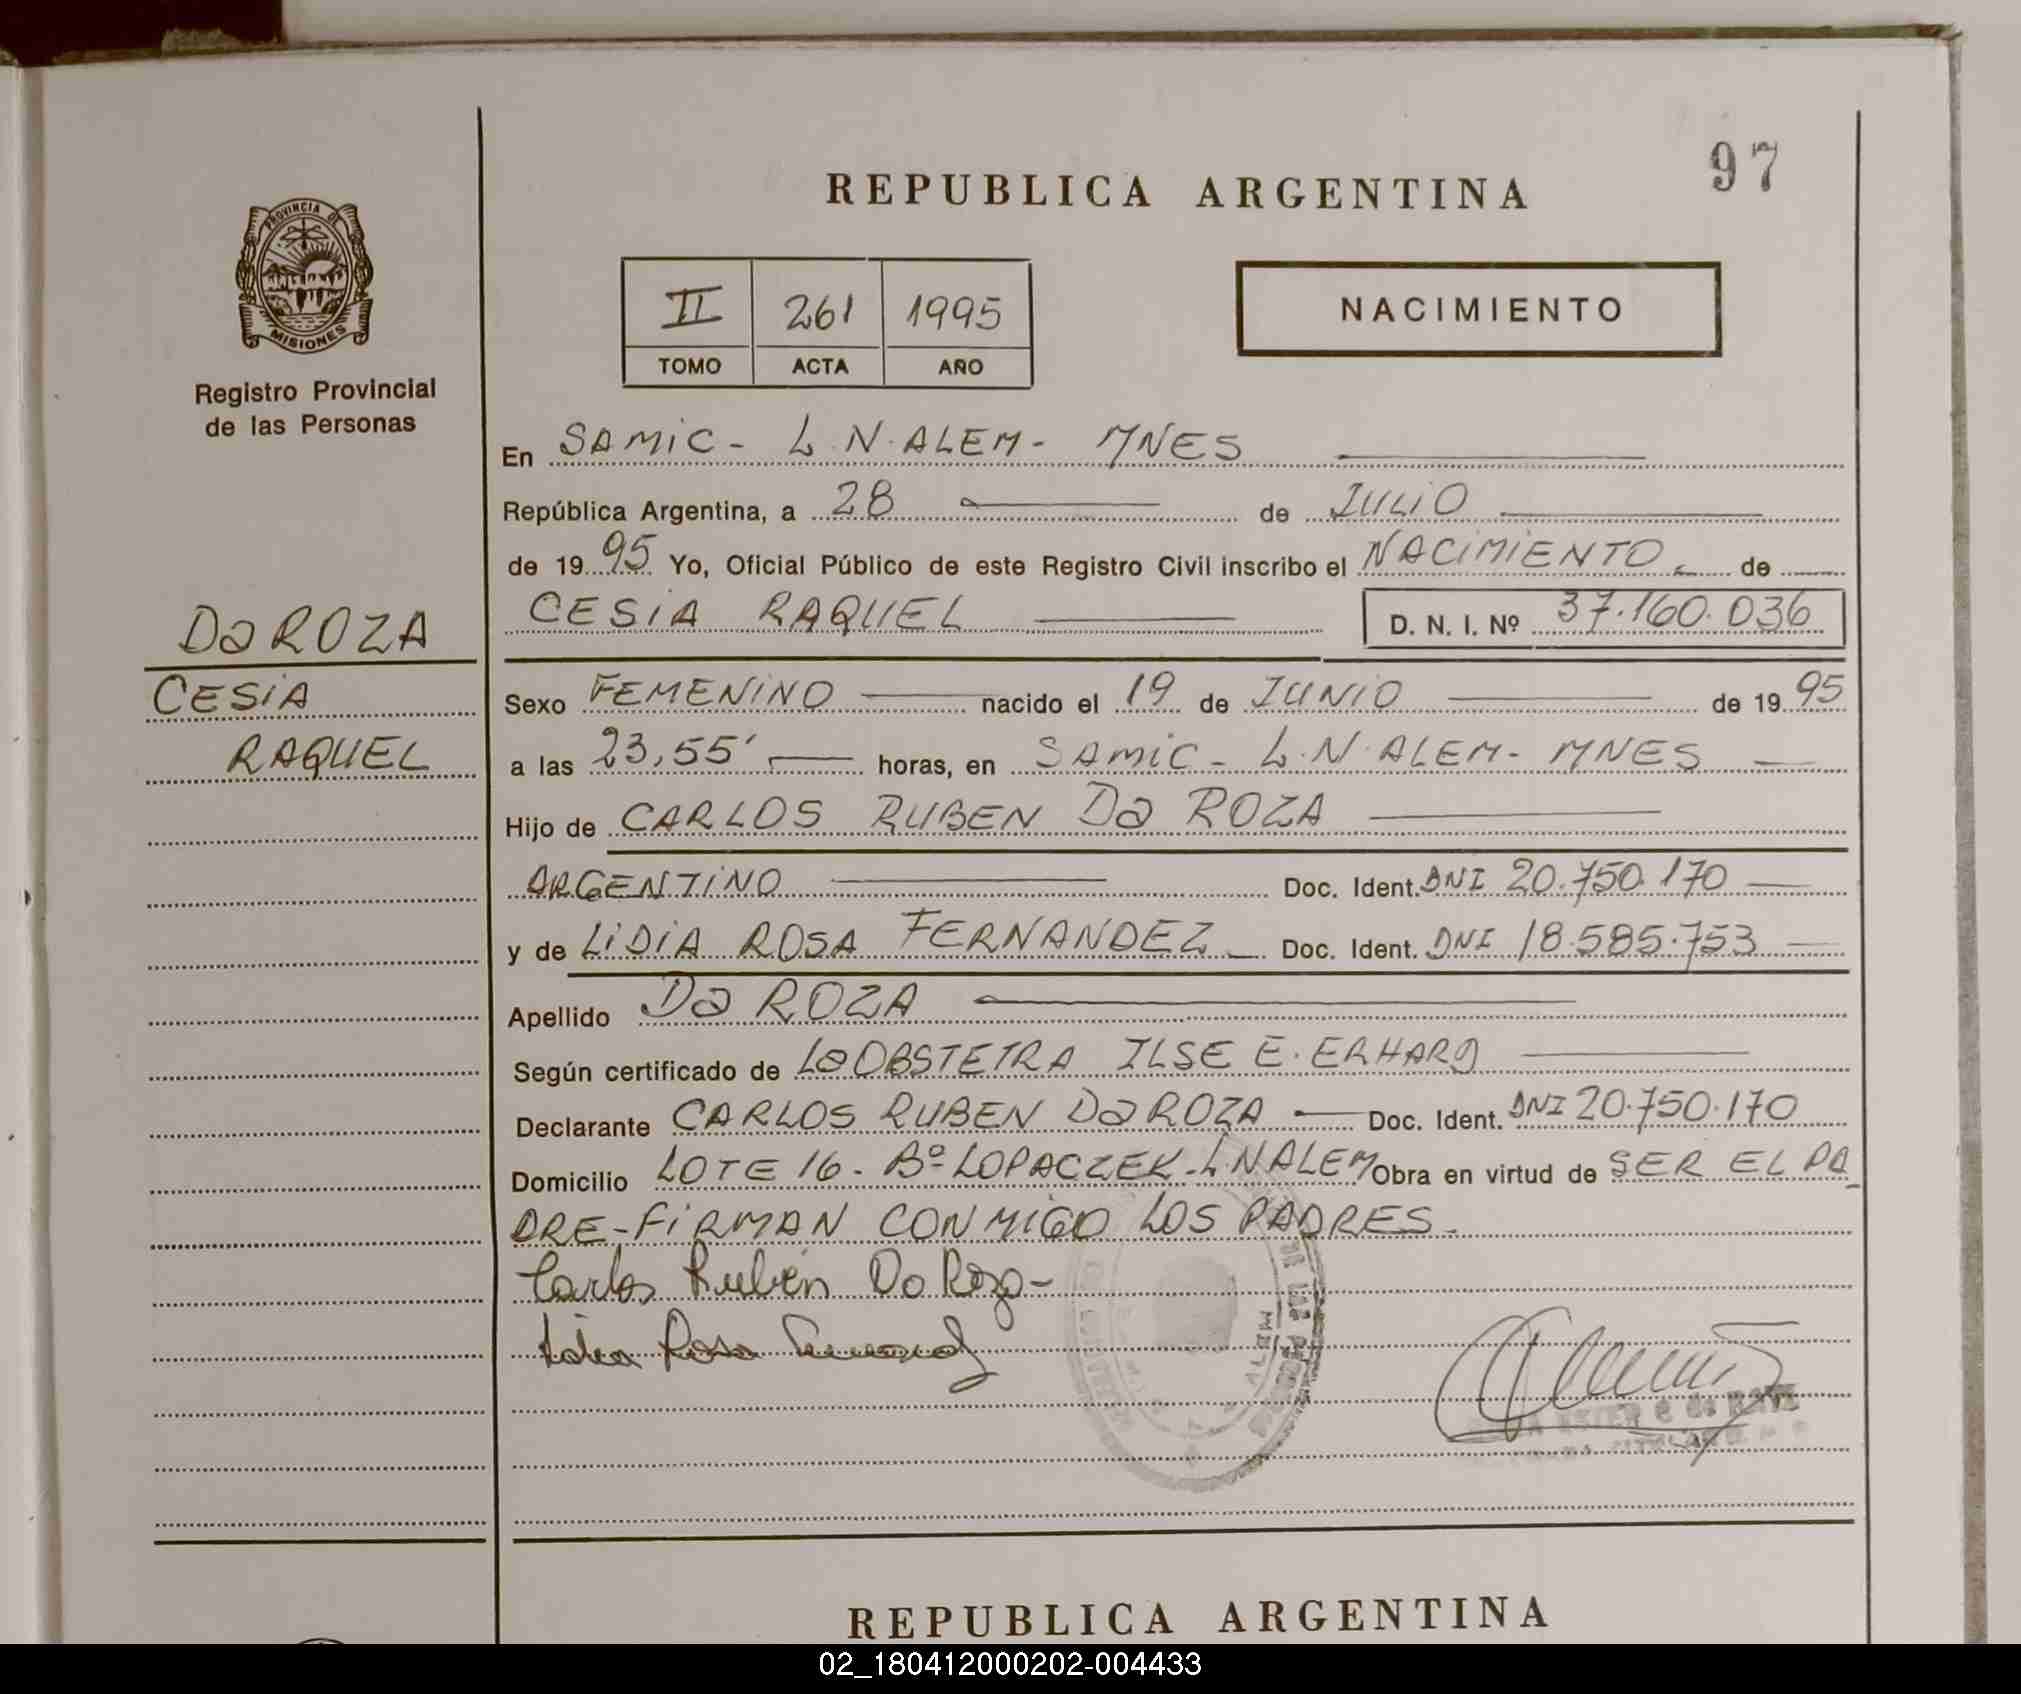 97
REPUBLICA ARGENTINA
PROVINCIA DE
MISIONES
Registro Provincial
de las Personas
II 261 1995
TOMO ACTA AÑO
NACIMIENTO
En SAMIC - L.N.ALEM - MNES
República Argentina, a 28 de JULIO
de 1995 Yo, Oficial Público de este Registro Civil inscribo el NACIMIENTO de
CESIA RAQUEL D. N. I. Nº 37.160.036
Da ROZA
CESIA
RAQUEL
Sexo FEMENINO nacido el 19 de JUNIO de 1995
a las 23,55' horas, en SAMIC - L.N.ALEM - MNES
Hijo de CARLOS RUBEN Da ROZA
ARGENTINO Doc. Ident. DNI 20.750.170
y de LIDIA ROSA FERNANDEZ Doc. Ident. DNI 18.585.753
Apellido Da ROZA
Según certificado de La OBSTETRA ILSE E. ERHARD
Declarante CARLOS RUBEN Da ROZA Doc. Ident. DNI 20.750.170
Domicilio LOTE 16 - Bº LOPACZEK - L.N.ALEM Obra en virtud de SER EL PA
DRE - FIRMAN CONMIGO LOS PADRES.
Carlos Rubén Da Roza -
Lidia Rosa Fernandez
REPUBLICA ARGENTINA
02_180412000202-004433